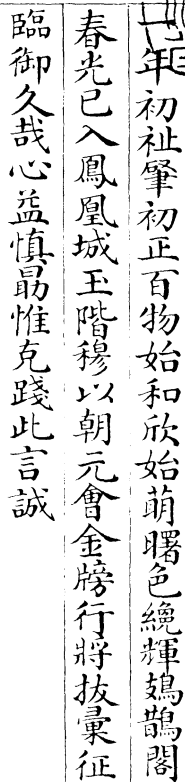 年初祉肇初正百物始和欣始萌曙色纔輝鳷鵲閣
春光已入鳳凰城玉階穆以朝元會金牓行將拔彙征
臨御久哉心益慎勗惟克踐此言誠